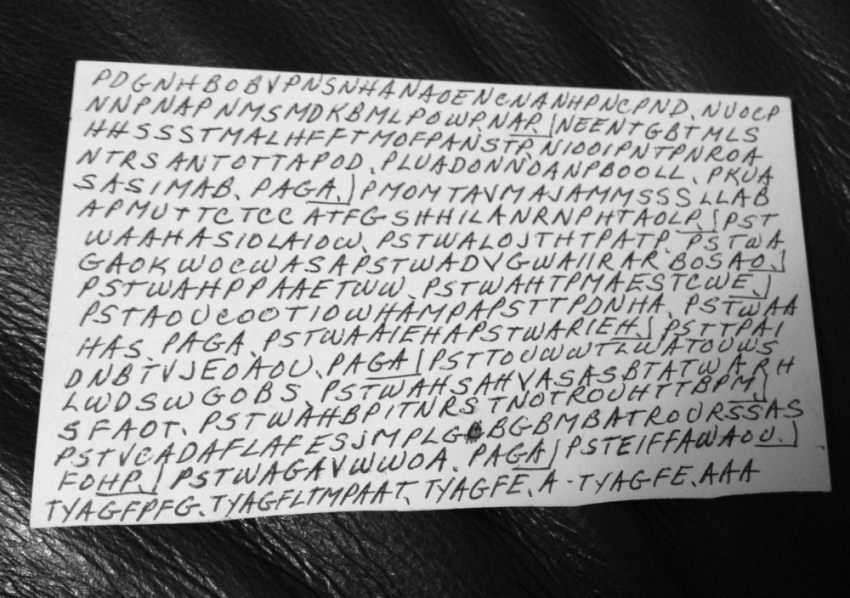 PDGNHBOBVPNSNHANAOENCNANHPNCPND, NUOCP
NNPNAPNMSMDKBMLPOWP, NAP. NEENTGBTMLS
HHSSSTMALHFFTMOFPANSTP, NIOOIPNTPNROA
NTRSANTOTTAPOD, PLUADONNOANPBOOLL, PKUA
SASIMAB, PAGA. PMOMTAVMAJAMMSSSLLAB
APMUTTCTCCATFGSHHILANRNPHTAOLP. PST
WAAHASIOLAIOW, PSTWALOJTHTPATP, PSTWA
GAOKWOCWASAPSTWADVGWAIIRARBOSAO.
PSTWAHPPAAETWW, PSTWAHTPMAESTCWE.
PSTAOUCOOTIOWHAMPAPSTTPDNHA, PSTWAA
HAS, PAGA, PSTWAAIEHAPSTWARIEH. PSTTPAI
DNBTVJEOAOU, PAGA PSTTOUWWTLWATOUWS
LWDSWGOBS, PSTWAHSAHVASASBTATWARH
SFAOT, PSTWAHBPITNRSTNOTROUHTTBPM.
PSTVCADAFLAFESJMPLG BGBMBATROURSSAS
FOHP. PSTWAGAVWWOA, PAGA PSTEIFFAWAOU.
TYAGFPFG, TYAGFLTMPAAT, TYAGFE, A-TYAGFE, AAA